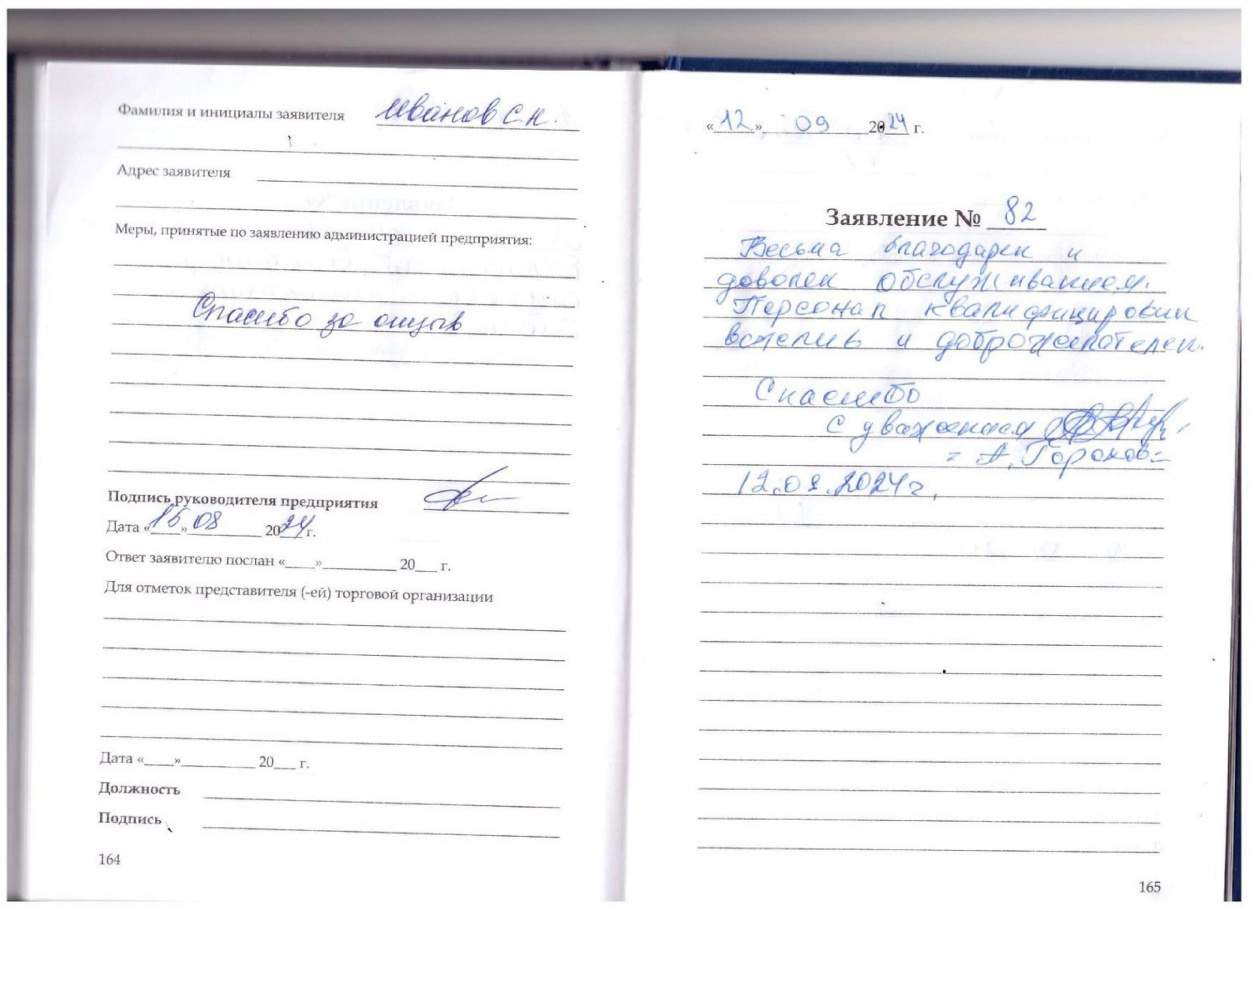 Фамилия и инициалы заявителя Иванов С.Н.
Адрес заявителя
Меры, принятые по заявлению администрацией предприятия:
Спасибо за отзыв
Подпись руководителя предприятия
Дата «15» 08 2024 г.
Ответ заявителю послан «____»__________ 20___ г.
Для отметок представителя (-ей) торговой организации
Дата «____»__________ 20___ г.
Должность
Подпись
164
«12» 09 2024 г.
Заявление № 82
Весьма благодарен и
доволен обслуживанием.
Персонал квалифицирован
вежлив и доброжелателен.
Спасибо
С уважением
12.09.2024г.
165